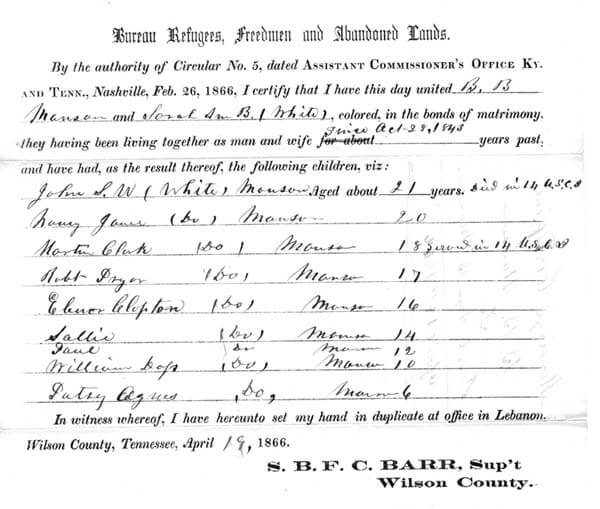 Bureau Refugees, Freedmen and Abandoned Lands.
By the authority of Circular No. 5, dated ASSISTANT COMMISSIONER'S OFFICE KY.
AND TENN., Nashville, Feb. 26, 1866, I certify that I have this day united B. B
Manson and Sarah Ann B. (White), colored, in the bonds of matrimony.
they having been living together as man and wife for about since Oct-28, 1843 years past,
and have had, as the result thereof, the following children, viz:
John S. W (White) Manson Aged about 21 years. Died in 14 U.S.C.I
Nancy Jane (Do) Manson 20
Martin Clark (Do) Manson 18 served in 14 U.S.C.I
Robt Pryor (Do) Manson 17
Elenor Clopton (Do) Manson 16
Sallie (Do) Manson 14
Paul Do Manson 12
William (Do) Manson 10
Patsy Agnes Do, Manson 6
In witness whereof, I have hereunto set my hand in duplicate at office in Lebanon.
Wilson County, Tennessee, April 19, 1866.
S. B. F. C. BARR, Sup't
Wilson County.